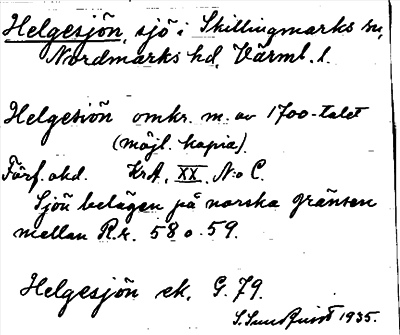 Helgesjön, sjö i Skillingmarks sn,
Nordmarks hd, Värml. l.
Helgesiön omkr. m. av 1700-talet
(möjl. kopia).
Förf. okd. KrA, XX, N:o C.
Sjön belägen på norska gränsen
mellan R.r. 58 o. 59.
Helgesjön ek. G. 79.
S. Sundquist 1935.